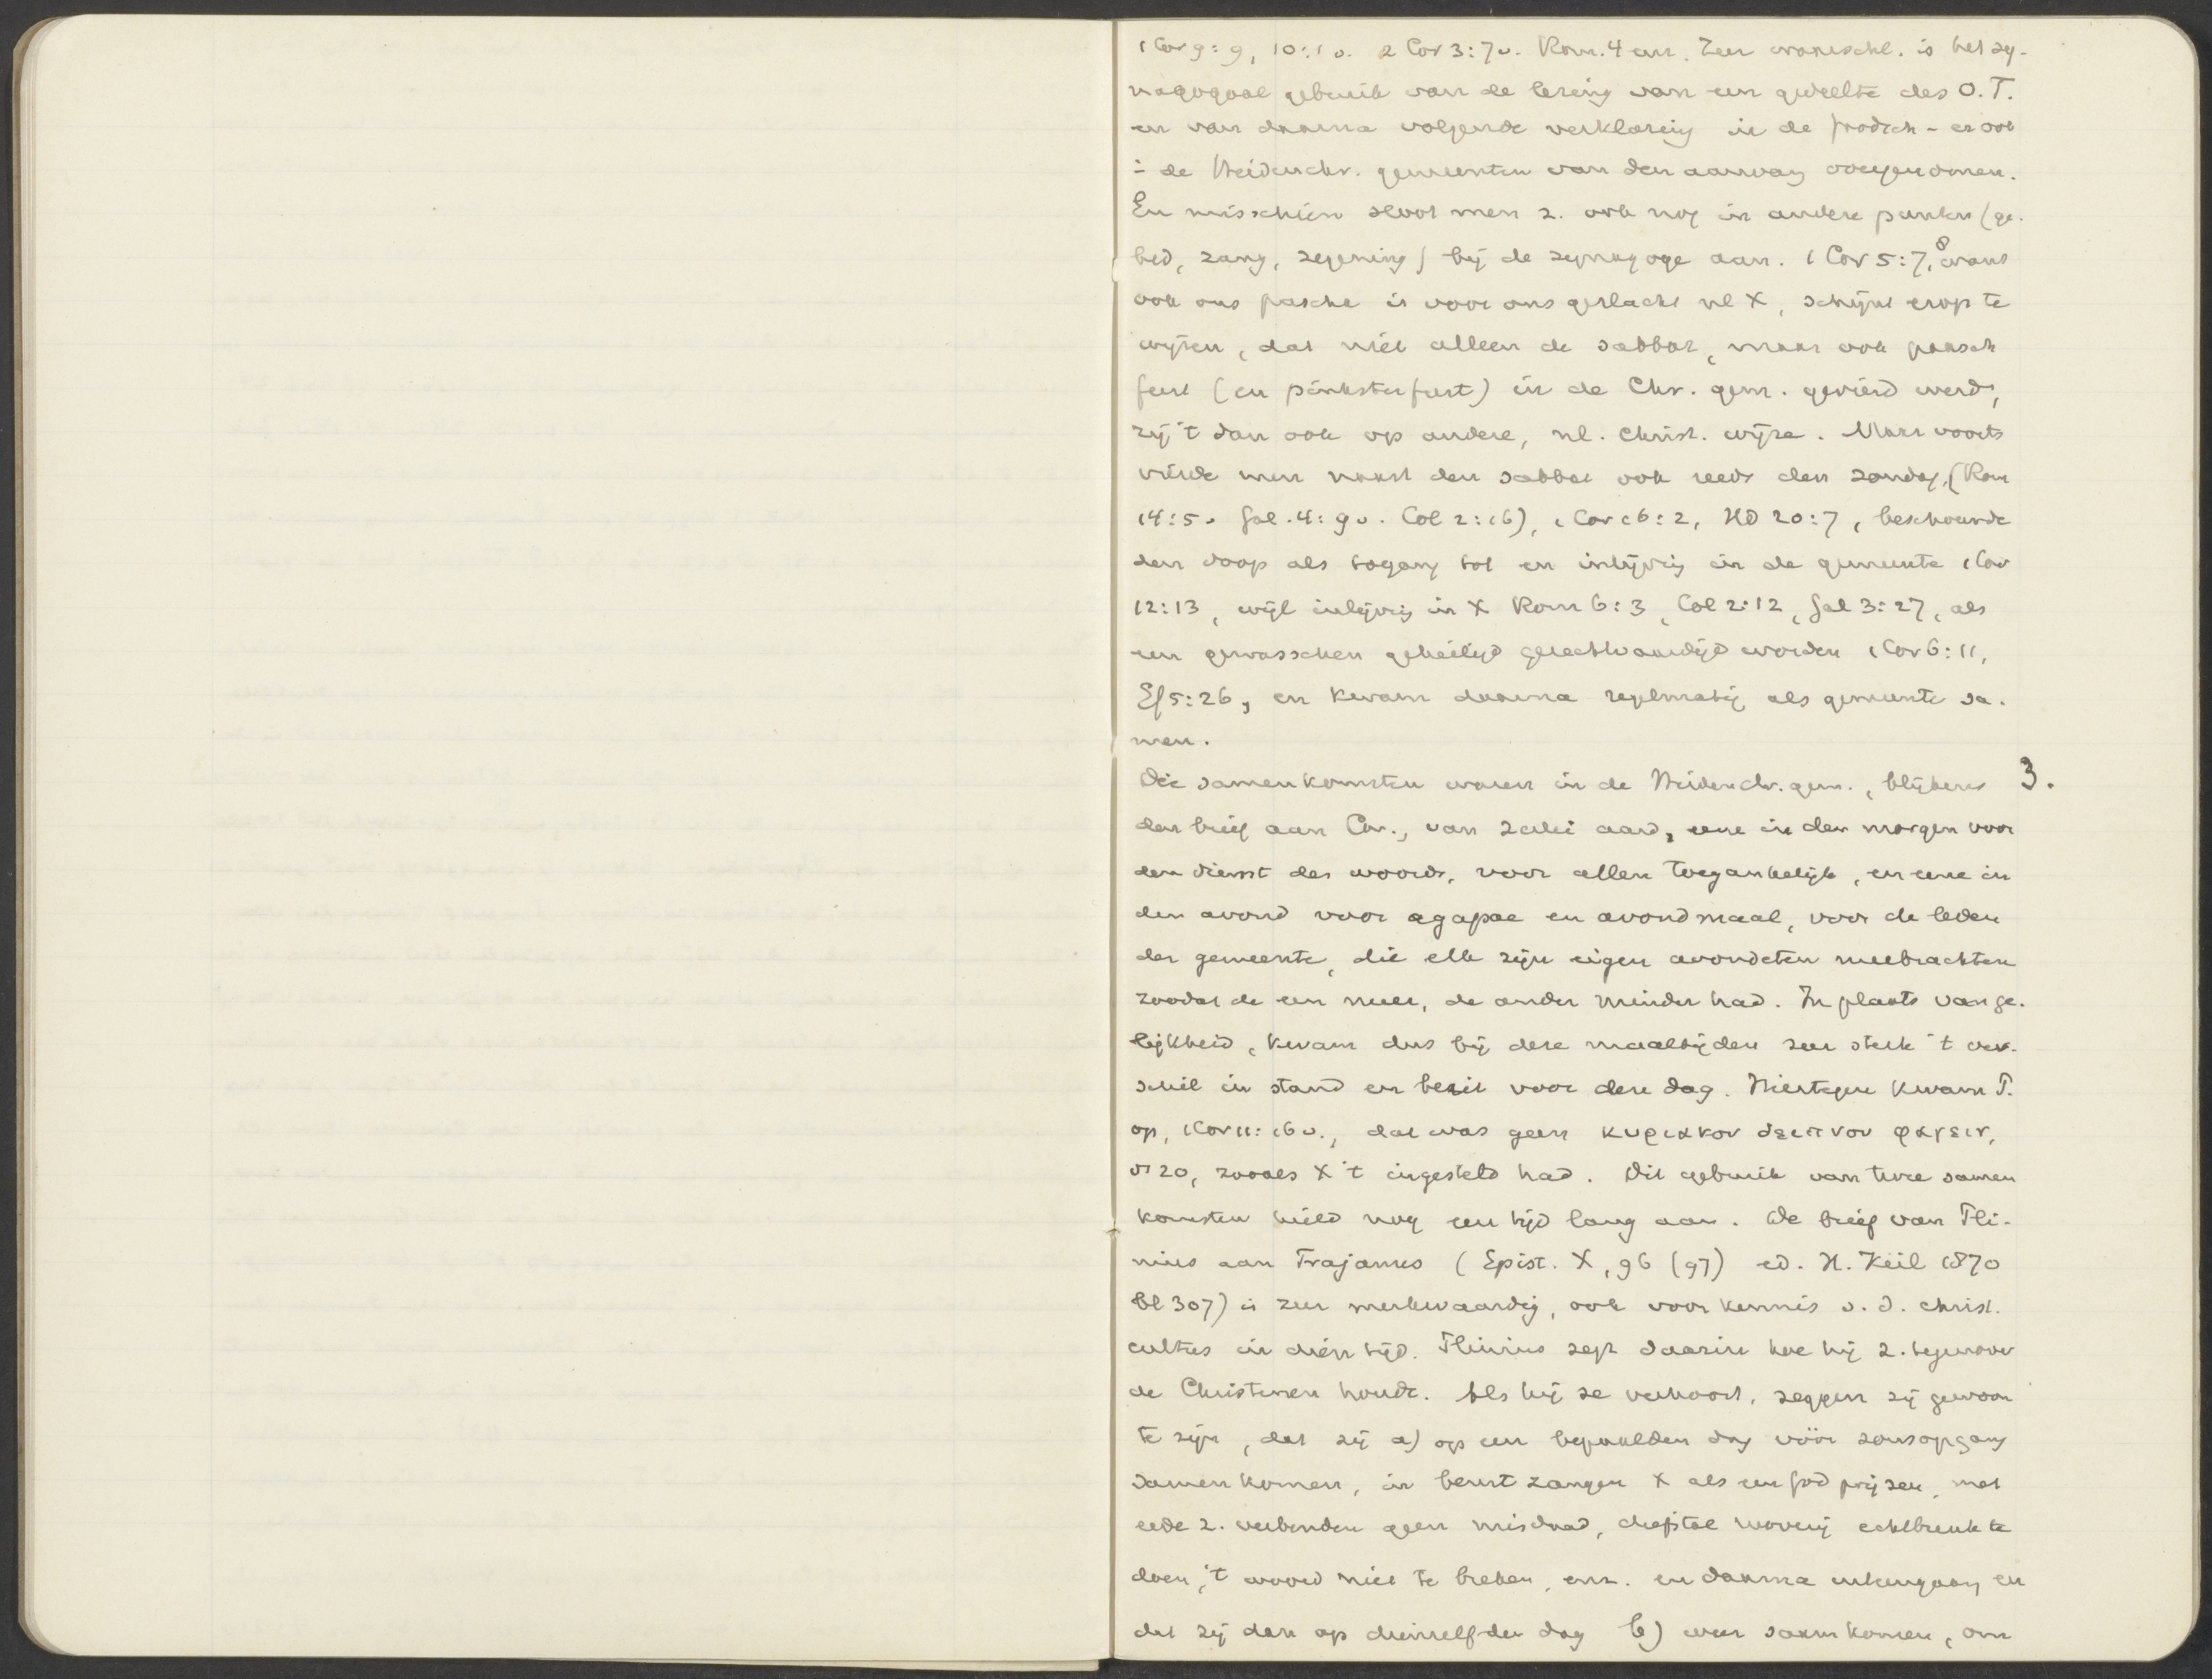 1 Cor 9:9, 10:1 v. 2 Cor 3:7 v. Rom. 4 enz. Zeer waarschl. is het sy-
nagogaal gebruik van de lezing van een gedeelte des O.T.
en van daarna volgende verklaring in de predik - er ook
in de Heidenchr. gemeenten van den aanvang overgenomen.
En misschien sloot men z. ook nog in andere punten (ge-
bed, zang, zegening) bij de synagoge aan. 1 Cor 5:7, 8 want
ook ons pascha is voor ons geslacht nl X, schijnt erop te
wijzen, dat niet alleen de sabbat, maar ook paasch
feest (en pinksterfeest) in de Chr. gem. gevierd werd,
zij 't dan ook op andere, nl. christ. wijze. Maar voorts
vierde men naast den sabbat ook reeds den zondag, (Rom
14:5v Gal. 4:9 v. Col 2:16), 1 Cor 16:2, HD 20:7, beschouwde
den doop als toegang tot en inlijving in de gemeente 1 Cor
12:13, wijl inlijving in X Rom 6:3, Col 2:12, Gal 3:27, als
een gewasschen geheiligd gerechtvaardigd worden 1 Cor 6:11,
Ef 5:26, en kwam daarna regelmatig als gemeente sa-
men.
Die samenkomsten waren in de Heidenchr. gem., blijkens 3.
den brief aan Cor., van 2erlei aard, eene in den morgen voor
den dienst des woords, voor allen toegankelijk, en eene in
den avond voor agapae en avondmaal, voor de leden
der gemeente, die elk zijn eigen avondeten meebrachten
zoodat de een meer, de ander minder had. In plaats van ge-
lijkheid, kwam dus bij deze maaltijden zeer sterk 't ver-
schil in stand en bezit voor den dag. Hiertegen kwam P.
op, 1 Cor 11:16 v., dat was geen κυριακον δειπνον φαγειν,
vs 20, zooals X 't ingesteld had. Dit gebruik van twee samen
komsten hield nog een tijd lang aan. De brief van Pli-
nius aan Trajanus (Epist. X, 96 (97) ed. H. Keil 1870
bl 307) is zeer merkwaardig, ook voor kennis v. d. christ.
cultus in dien tijd. Plinius zegt daarin hoe hij z. tegenover
de Christenen houdt. Als hij ze verhoort, zeggen zij gewoon
te zijn, dat zij a) op een bepaalden dag vóór zonsopgang
samenkomen, in beurtzangen X als een God prijzen, met
eede z. verbinden geen misdaad, diefstal rooverij echtbreuk te
doen, 't woord niet te breken, enz. en daarna uiteengaan, en
dat zij dan op dienzelfden dag b) weer saamkomen, om